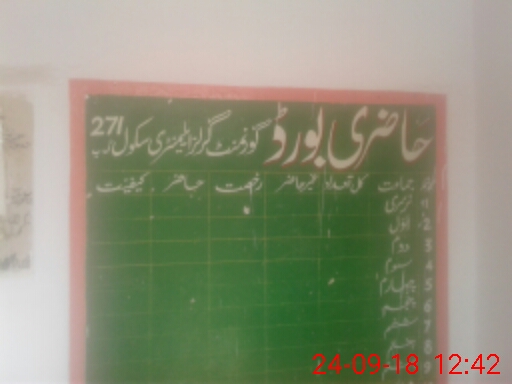 حاضری بورڈ گورنمنٹ گرلز ایلیمنٹری سکول 271 ر ب
جماعت کل تعداد غیر حاضر رخصت حاضر کیفیت
1 نرسری
2 اول
3 دوم
4 سوم
5 چہارم
6 پنجم
7 ششم
8
9
24-09-18 12:42